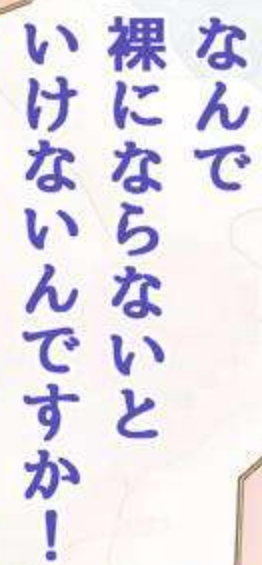 なんで
裸にならないと
いけないんですか!